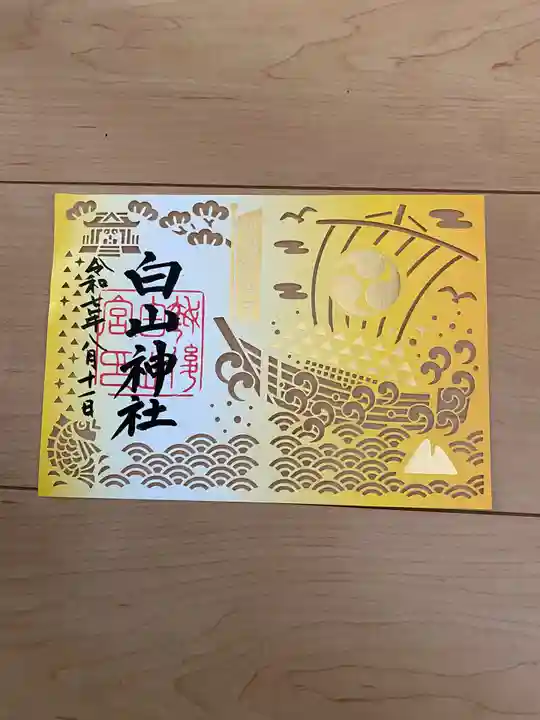 白山神社
令和七年八月十一日